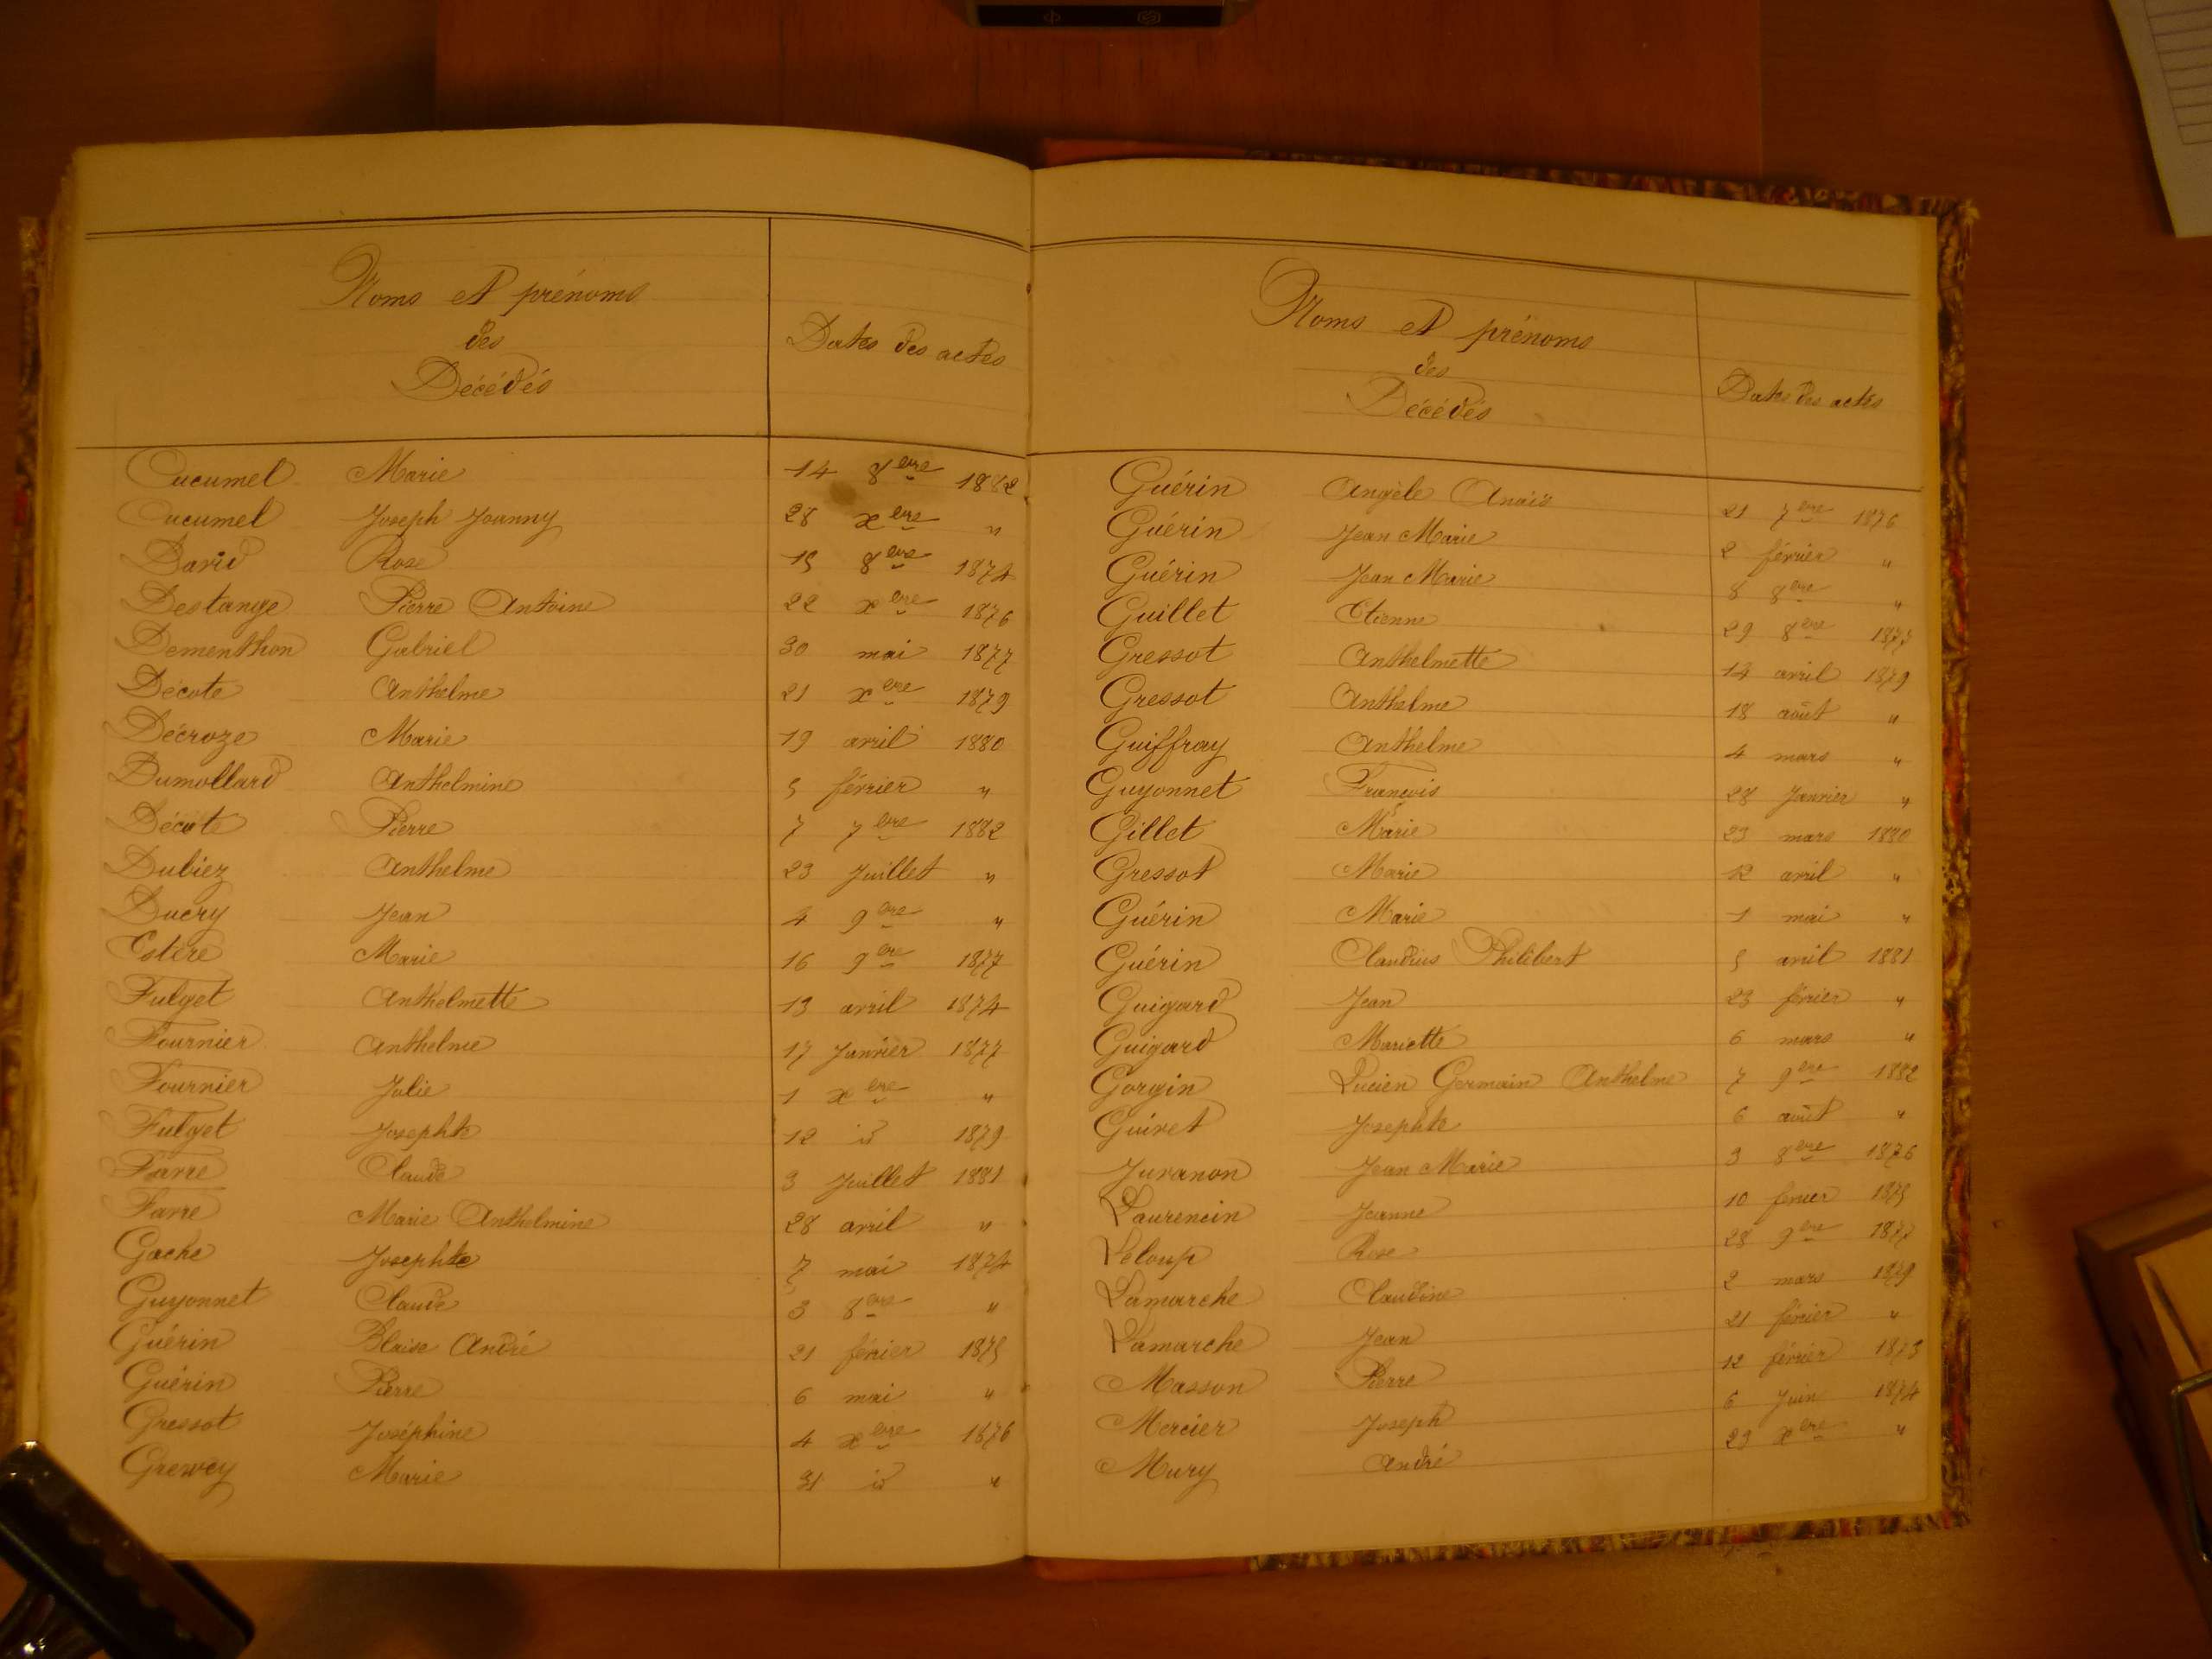 Noms et prénoms
des
Décédés
Dates des actes
Cucumel Marie 14 8bre 1882
Cucumel Joseph Joanny 28 xbre "
David Rose 15 8bre 1874
Destange Pierre Antoine 22 xbre 1876
Dementhon Gabriel 30 mai 1877
Décote Anthelme 21 xbre 1879
Décroze Marie 19 avril 1880
Dumollard Anthelmine 5 février "
Décote Pierre 7 7bre 1882
Dubiez Anthelme 23 Juillet "
Ducry Jean 4 9bre "
Estère Marie 16 9bre 1877
Fulget Anthelmette 13 avril 1874
Fournier Anthelme 17 Janvier 1877
Fournier Julie 1 xbre "
Fulget Josephte 12 id 1879
Favre Claude 3 Juillet 1881
Favre Marie Anthelmine 28 avril "
Gache Josephte 7 mai 1874
Guyonnet Claude 3 8bre "
Guérin Blaise André 21 février 1875
Guérin Pierre 6 mai "
Gressot Joséphine 4 xbre 1876
Marie 31 id "
Noms et prénoms
des
Décédés
Dates des actes
Guérin Angèle Anaïs 21 7bre 1876
Guérin Jean Marie 2 février "
Guérin Jean Marie 8 8bre "
Guillet Etienne 29 8bre 1877
Gressot Anthelmette 14 avril 1879
Gressot Anthelme 18 août "
Guiffray Anthelme 4 mars "
Guyonnet François 28 Janvier "
Gillet Marie 23 mars 1880
Gressot Marie 12 avril "
Guérin Marie 1 mai "
Guérin Claudius Philibert 5 avril 1881
Guigard Jean 23 février "
Guigard Mariette 6 mars "
Gorgin Lucien Germain Anthelme 7 9bre 1882
Guivet Josephte 6 août "
Juranon Jean Marie 3 8bre 1876
Laurencin Jeanne 10 février 1875
Leloup Rose 28 9bre 1877
Lamarche Claudine 2 mars 1879
Lamarche Jean 21 février "
Masson Pierre 12 février 1873
Mercier Joseph 6 Juin 1874
Mury André 23 xbre "